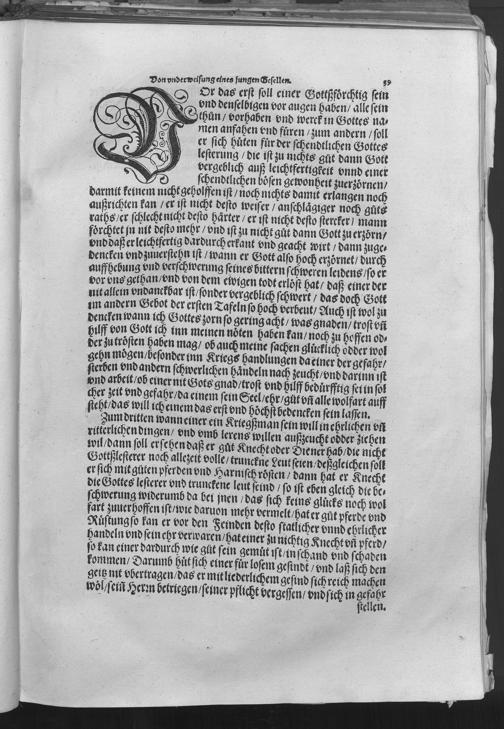 Von vnderweisung eines jungen Gesellen. 59
VOr das erst soll einer Gottßförchtig sein
vnd denselbigen vor augen haben/ alle sein
thůn/ vorhaben vnd werck in Gottes na-
men anfahen vnd füren/ zum andern/ soll
er sich hüten für der schendtlichen Gottes
lesterung/ die ist zu nichts gůt dann Gott
vergeblich auß leichtfertigkeit vnnd einer
schendtlichen bösen gewonheit zuerzörnen/
darmit keinem nicht geholffen ist/ noch nichts damit erlangen noch
außrichten kan/ er ist nicht desto weiser/ anschlägiger noch gůts
raths/ er schlecht nicht desto härter/ er ist nicht desto stercker/ mann
förchtet jn nit desto mehr/ vnd ist zu nicht gůt dann Gott zu erzörn/
vnd daß er leichtfertig dardurch erkant vnd geacht wirt/ dann zuge-
dencken vnd zuuerstehn ist/ wann er Gott also hoch erzörnet/ durch
auffhebung vnd verschwerung seines bittern schweren leidens/ so er
vor vns gethan/ vnd von dem ewigen todt erlößt hat/ daß einer der
nit allein vndanckbar ist/ sonder vergeblich schwert/ das doch Gott
im andern Gebot der ersten Tafeln so hoch verbeut/ Auch ist wol zu
dencken wann ich Gottes zorn so gering acht/ was gnaden/ trost vñ
hilff von Gott ich inn meinen nöten haben kan/ noch zu hoffen od-
der zu trösten haben mag/ ob auch meine sachen glücklich odder wol
gehn mögen/ besonder inn Kriegs handlungen da einer der gefahr/
sterben vnd andern schwerlichen händeln nach zeucht/ vnd darinn ist
vnd arbeit/ ob einer nit Gots gnad/ trost vnd hilff bedürfftig sei in sol
cher zeit vnd gefahr/ da einem sein Seel/ ehr/ gůt vñ alle wolfart auff
steht/ das will ich einem das erst vnd höchst bedencken sein lassen.
Zum dritten wann einer ein Kriegßman sein will in ehrlichen vñ
ritterlichen dingen/ vnd vmb lerens willen außzeucht odder ziehen
wil/ dann soll er sehen daß er gůt Knecht oder Diener hab/ die nicht
Gottßlesterer noch allezeit volle/ trunckne Leut seien/ deßgleichen soll
er sich mit gůten pferden vnd Harnisch rösten/ dann hat er Knecht
die Gottes lesterer vnd trunckene leut seind/ so ist eben gleich die be-
schwerung widerumb da bei jnen/ das sich keins glücks noch wol
fart zuuerhoffen ist/ wie daruon mehr vermelt/ hat er gůt pferde vnd
Rüstung so kan er vor den Feinden desto statlicher vnnd ehrlicher
handeln vnd sein ehr verwaren/ hat einer zu nichtig Knecht vñ pferd/
so kan einer dardurch wie gůt sein gemüt ist/ in schand vnd schaden
kommen/ Darumb hüt sich einer für losem gesindt/ vnd laß sich den
geitz nit vbertragen/ das er mit liederlichem gesind sich reich machen
wöl/ seiñ Herrn betriegen/ seiner pflicht vergessen/ vnd sich in gefahr
stellen.